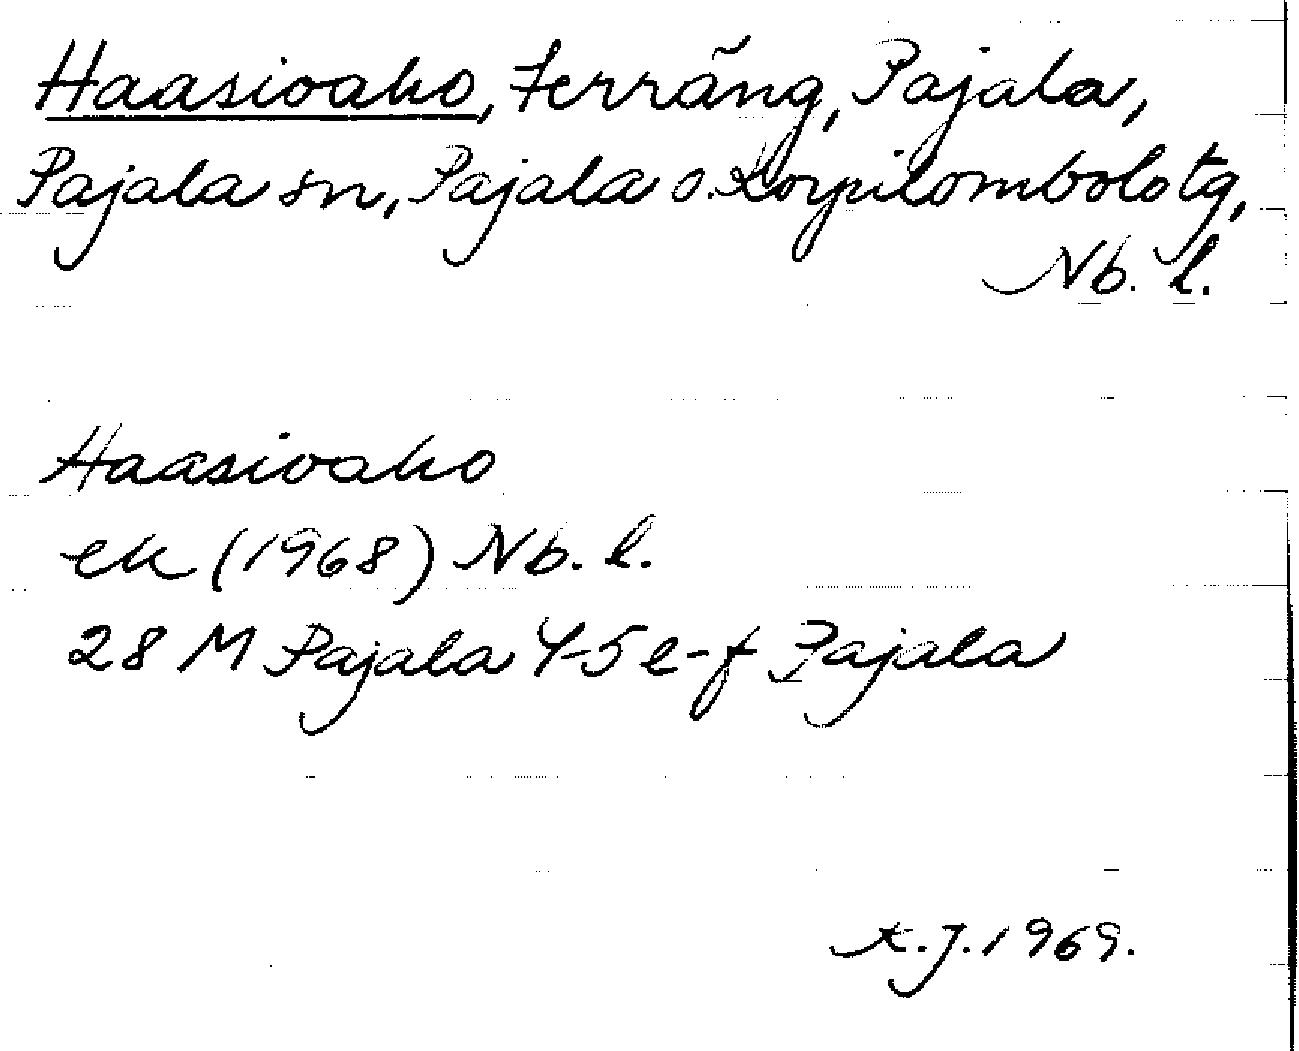 Haasioaho, Terräng, Pajala,
Pajala sn, Pajala o. Korpilombolo tg,
Nb. l.
Haasioaho
ek (1968) Nb. l.
28 M Pajala 4-5 e-f Pajala
K.J. 1969.